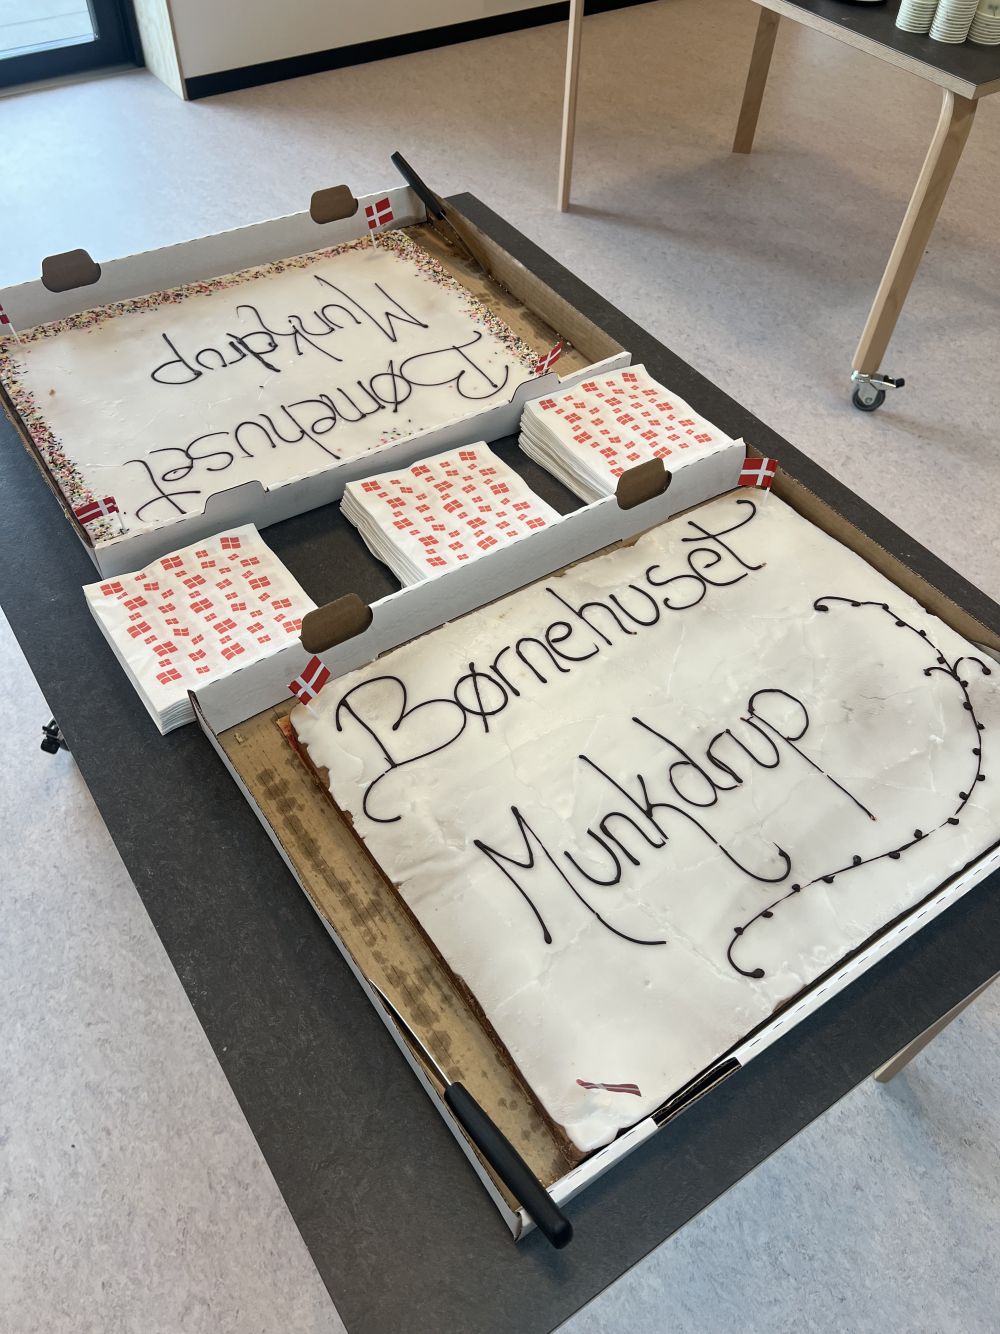 Børnehuset
Munkdrup
Børnehuset
Munkdrup